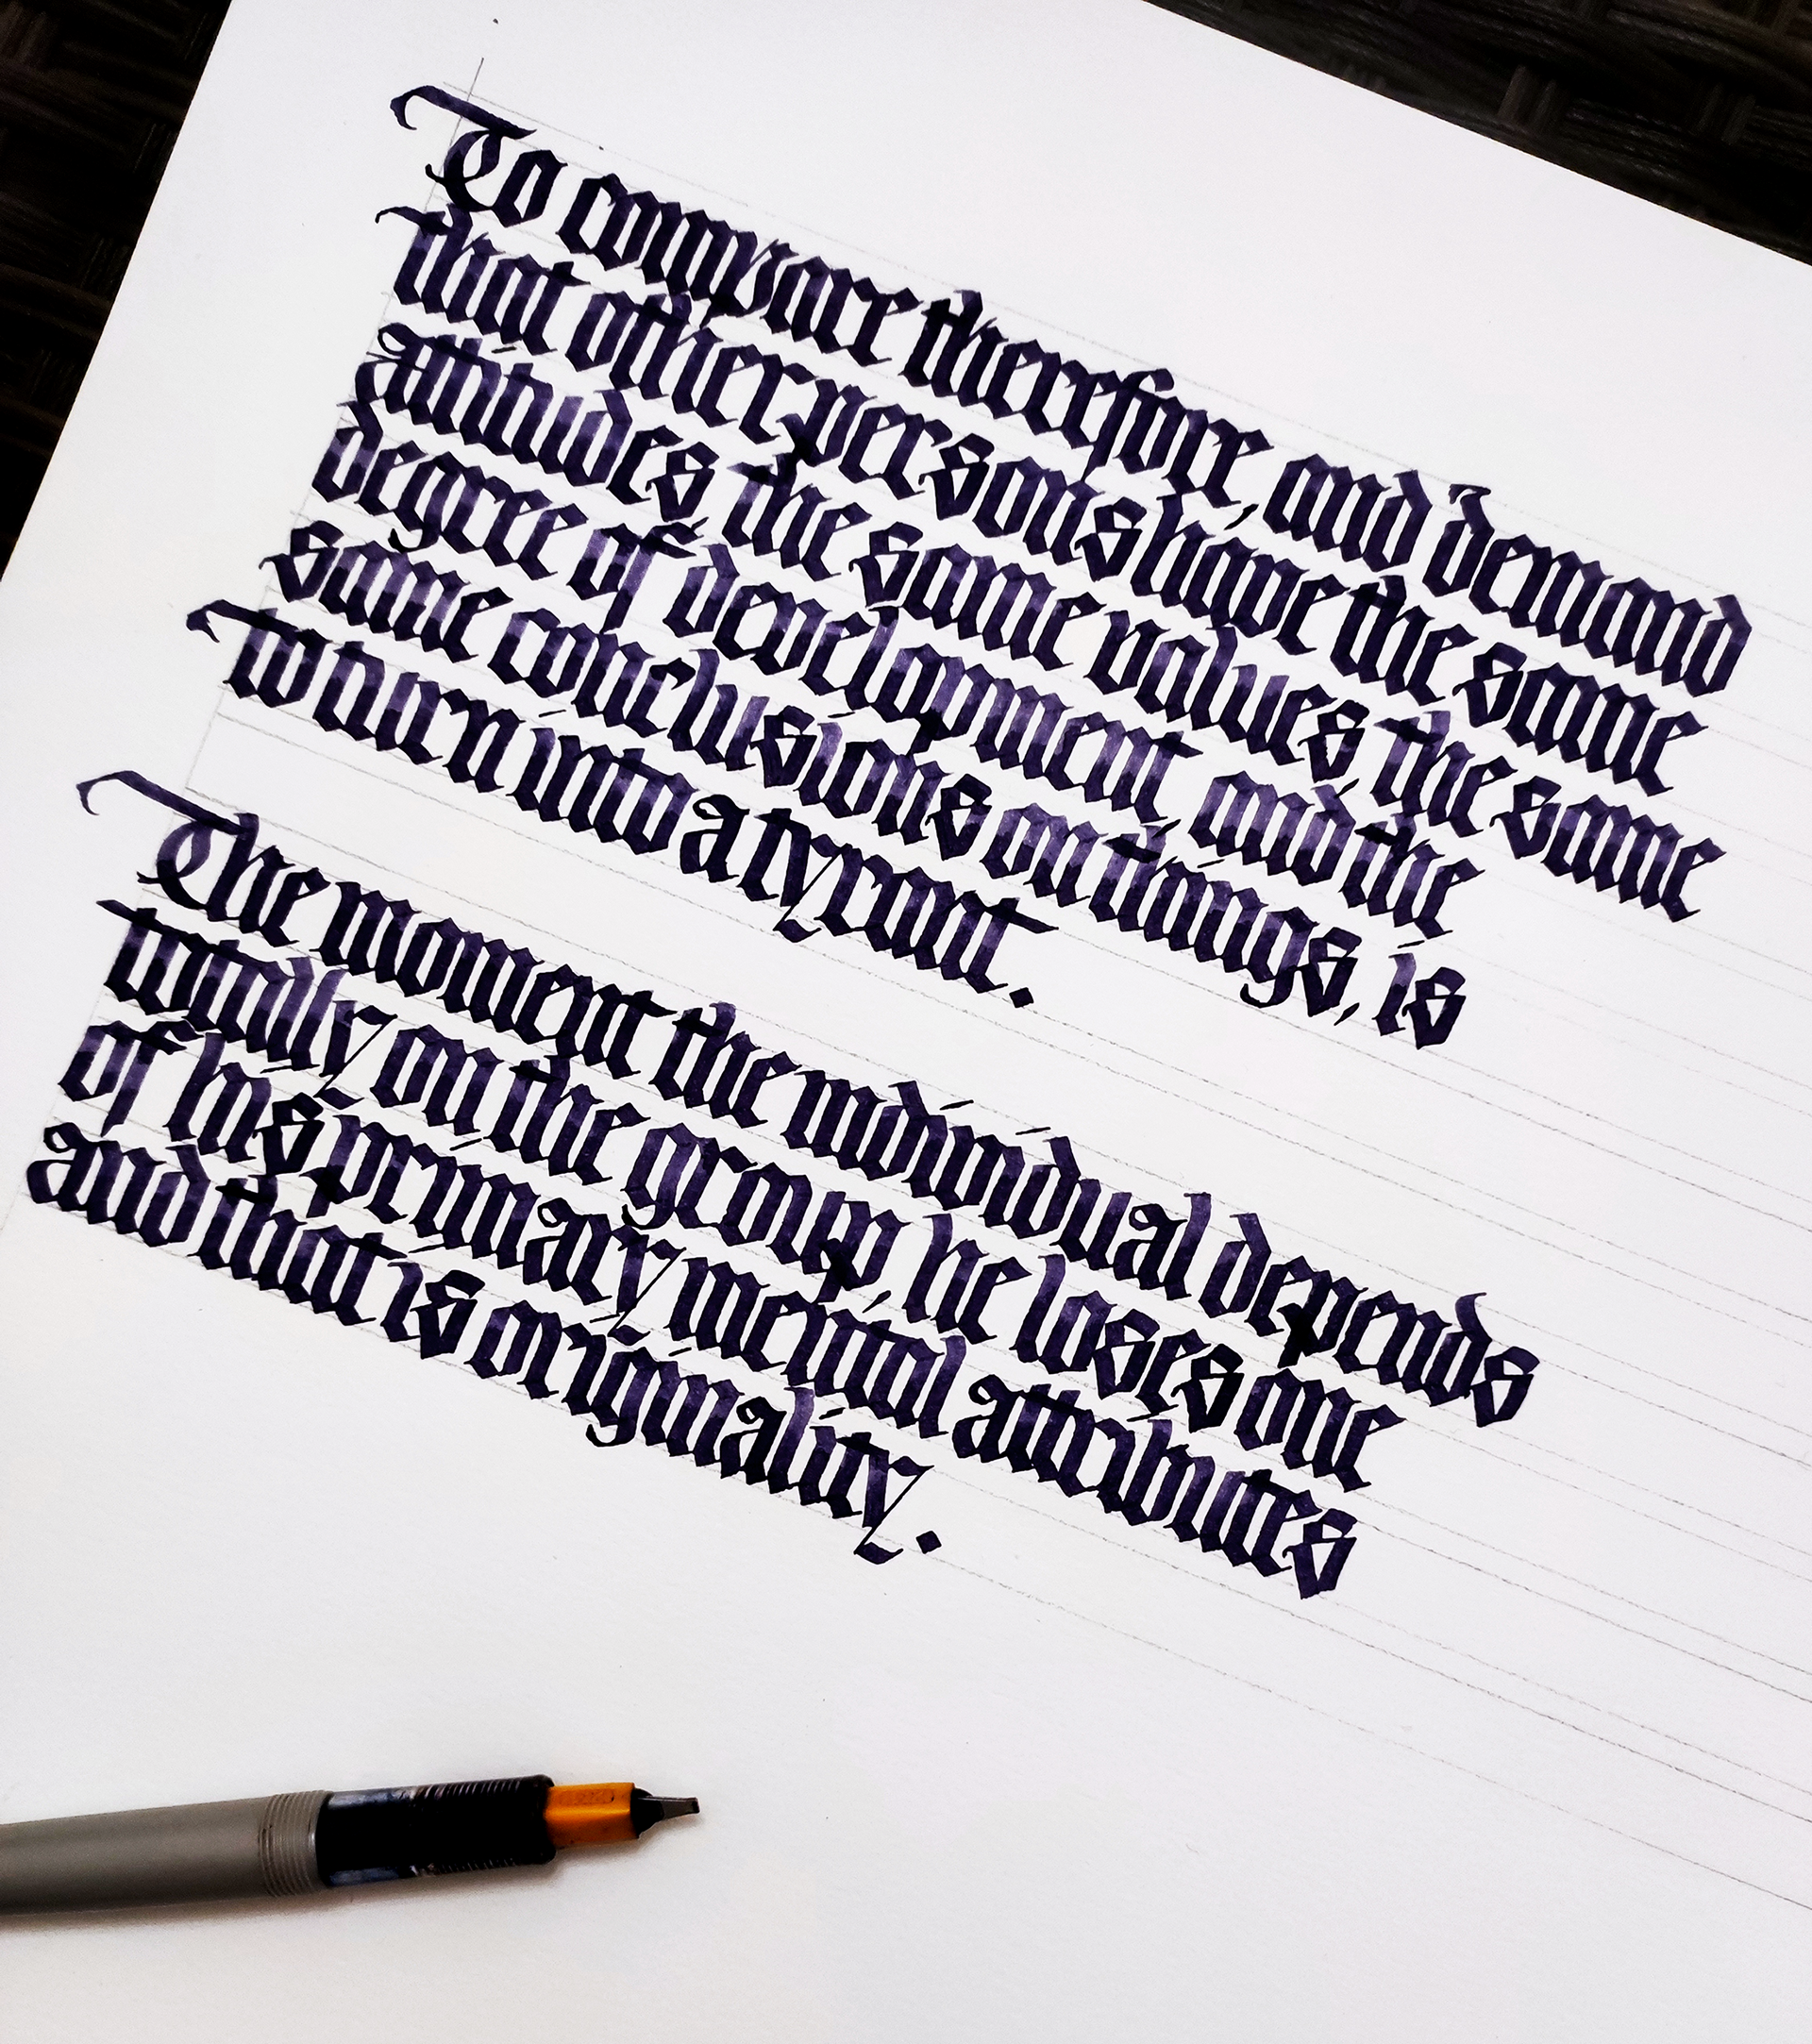 To compare therefore, and demand
that other persons have the same
attitudes, the same values the same
degree of development, and the
same conclusions on things, is
to turn into a tyrant.
The moment the individual depends
totally on the group, he loses one
of his primary mental attributes
and that is originality.